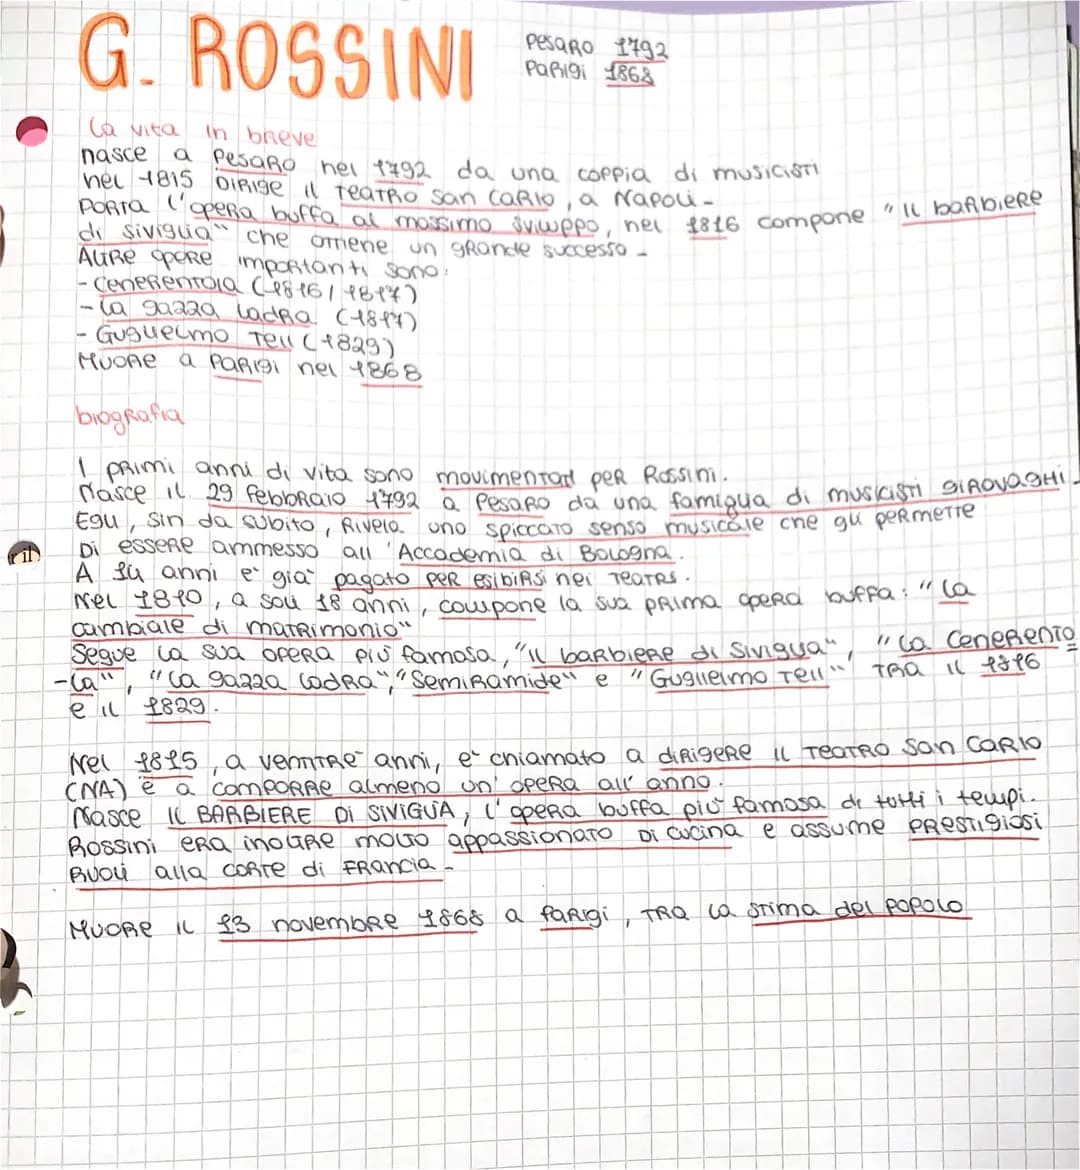 G. ROSSINI
Pesaro 1792
Parigi 1868
La vita in breve
nasce a Pesaro nel 1792 da una coppia di musicisti
nel 1815 DIRIGE il TEATRO San Carlo, a Napoli-
PORTA l'opera buffa al massimo sviluppo, nel 1816 compone "Il barbiere
di Siviglia" che ottiene un grande successo-
Altre opere importanti sono:
- Cenerentola (1816/1817)
- La gazza ladra (1817)
- Guglielmo Tell (1829)
MUORE a Parigi nel 1868
biografia
I primi anni di vita sono movimentati per Rossini.
Nasce il 29 febbraio 1792 a Pesaro da una famiglia di musicisti girovaghi-
Egli, sin da subito, rivela uno spiccato senso musicale che gli permette
Di essere ammesso all'Accademia di Bologna.
A 14 anni e' già pagato per esibirsi nei teatri.
Nel 1810, a soli 18 anni, compone la sua prima opera buffa: "La
cambiale di matrimonio"
Segue la sua opera più famosa, "Il barbiere di Siviglia", "La Cenerento
-la", "La gazza ladra", "Semiramide" e "Guglielmo Tell" TRA il 1816
e il 1829.
Nel 1815, a ventitré anni, e' chiamato a dirigere il Teatro San Carlo
(NA) e a comporre almeno un'opera all'anno.
Nasce IL BARBIERE DI SIVIGLIA, l'opera buffa più famosa di tutti i tempi.
Rossini era inoltre molto appassionato di cucina e assume prestigiosi
ruoli alla corte di Francia-
MUORE il 13 novembre 1868 a Parigi, TRA la stima del popolo